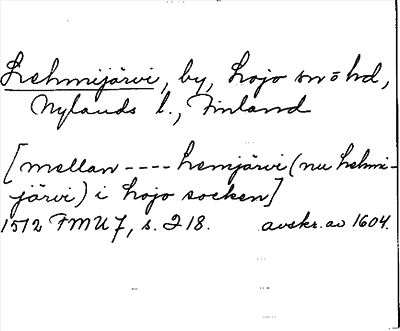 Lehmijärvi, by, Lojo sn o hd,
Nylands l., Finland
[mellan ---- Lemjärvi (nu Lehmi-
järvi) i Lojo socken]
1512 FMU 7, s. 218. avskr. av 1604.